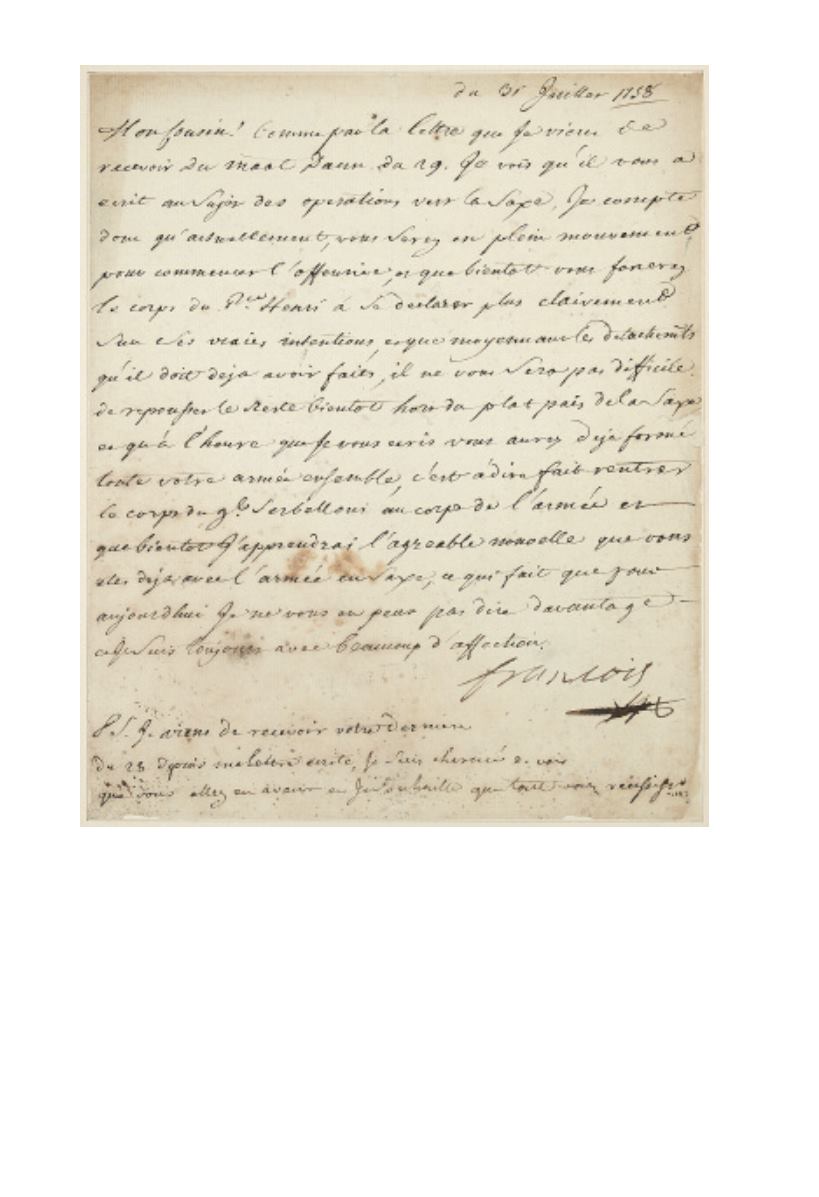 du 31 Juillet 1758
Mon Cousin! Comme par la lettre que Je viens de
recevoir du maal Daun du 29. Je vois qu'il vous a
ecrit au Sujet des operations vers la Saxe, Je compte
donc qu'actuellement, vous Serez en plein mouvement
pour commencer l'offensive, et que bientot vous forcerez
le corps du Pce Henri à Se declarer plus clairement
Sur Ses vraies intentions, et que moyennant les detachemts
qu'il doit deja avoir faits, il ne vous Sera pas difficile
de repousser le Reste bientot hors du plat païs de la Saxe
et qu'à l'heure que Je vous ecris vous aurez deja formé
toute votre armée ensemble, c'est à dire fait rentrer
le corps du gl Serbelloni au corps de l'armée et
que bientot J'apprendrai l'agreable nouvelle que vous
etes deja avec l'armée en Saxe, ce qui fait que pour
aujourdhui Je ne vous en peux pas dire davantage
et Je Suis toujours avec beaucoup d'affection.
françois
P.S. Je viens de recevoir votre derniere
du 28 depuis ma lettre ecrite, Je Suis charmé de voir
que vous allez en avant et Je Souhaite que tout vous